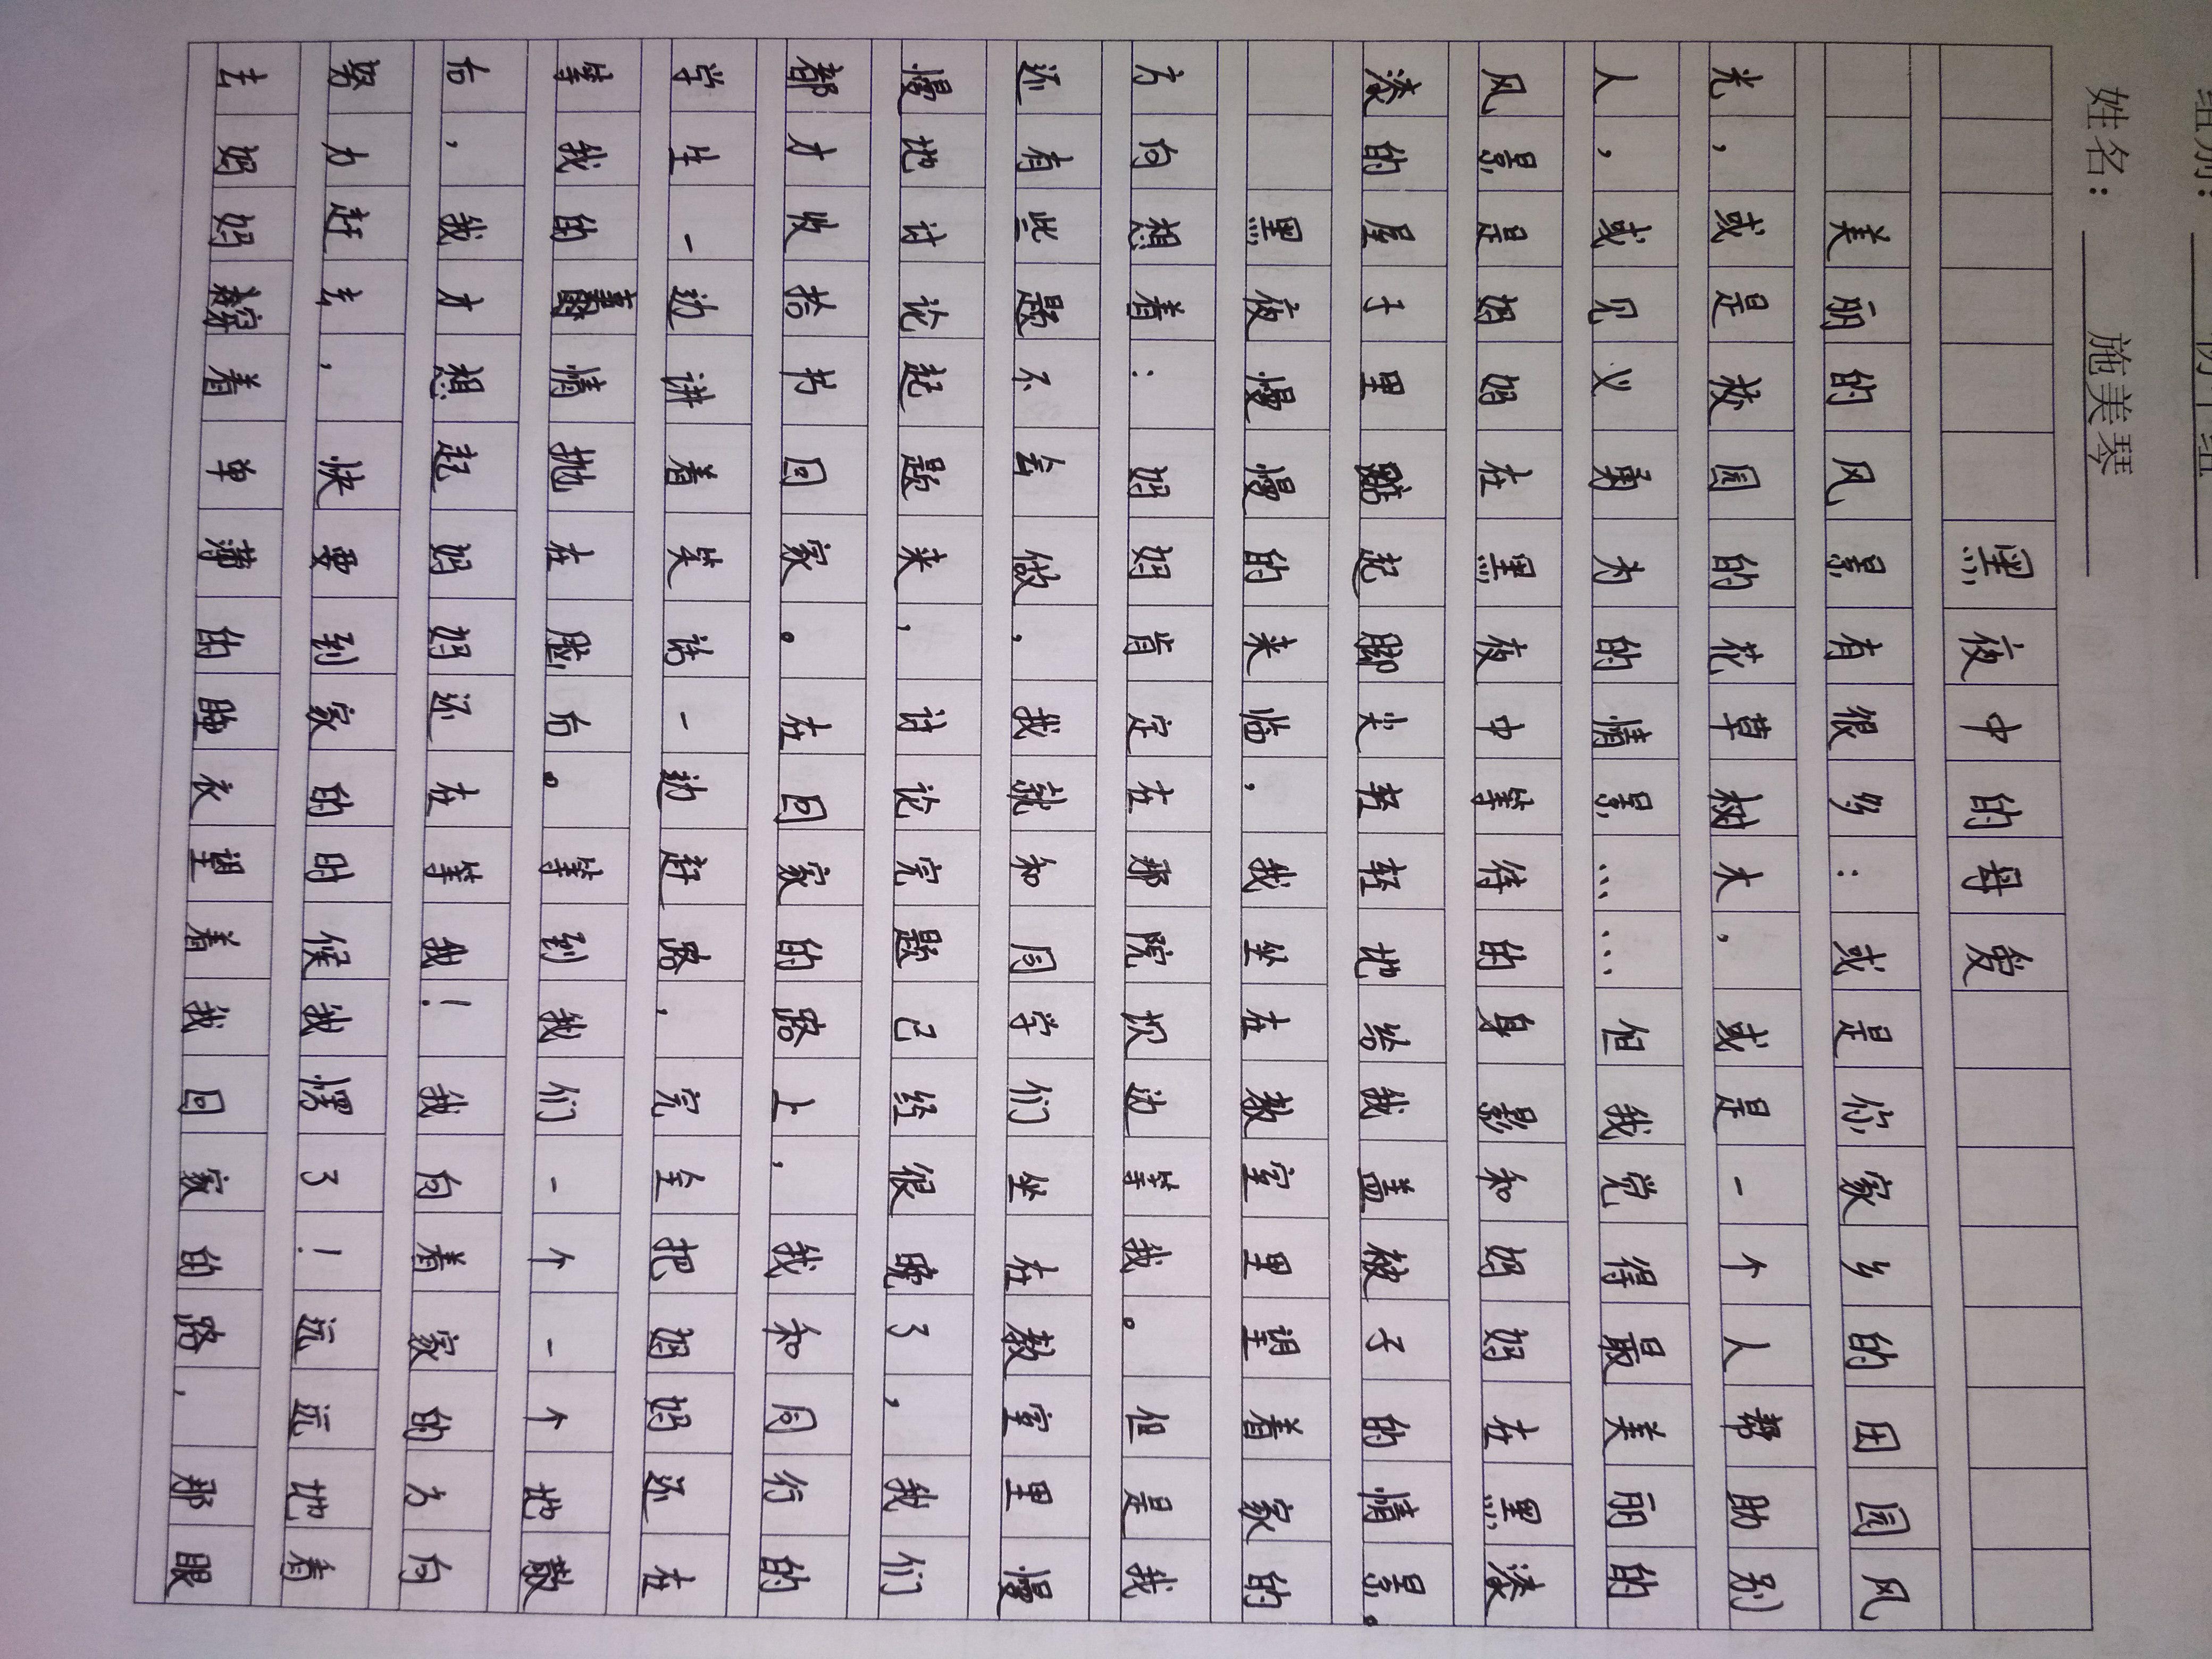 组别：初中组
姓名：施美琴
黑夜中的母爱
美丽的风景有很多：或是你家乡的田园风
光，或是校园的花草树木，或是一个人帮助别
人，或见义勇为的情景……但我觉得最美丽的
风景是妈妈在黑夜中等待的身影和妈妈在黑漆
漆的屋子里踮起脚尖轻轻地给我盖被子的情景。
黑夜慢慢的来临，我坐在教室里望着家的
方向想着：妈妈肯定在那院坝边等我。但是我
还有些题不会做，我就和同学们坐在教室里慢
慢地讨论起题来，讨论完题已经很晚了，我们
都才收拾书回家。在回家的路上，我和同行的
学生一边讲着笑话一边赶路，完全把妈妈还在
等我的事情抛在脑后。等到我们一个一个地散
后，我才想起妈妈还在等我！我向着家的方向
努力赶去，快要到家的时候我愣了！远远地看
去妈妈穿着单薄的睡衣望着我回家的路，那眼